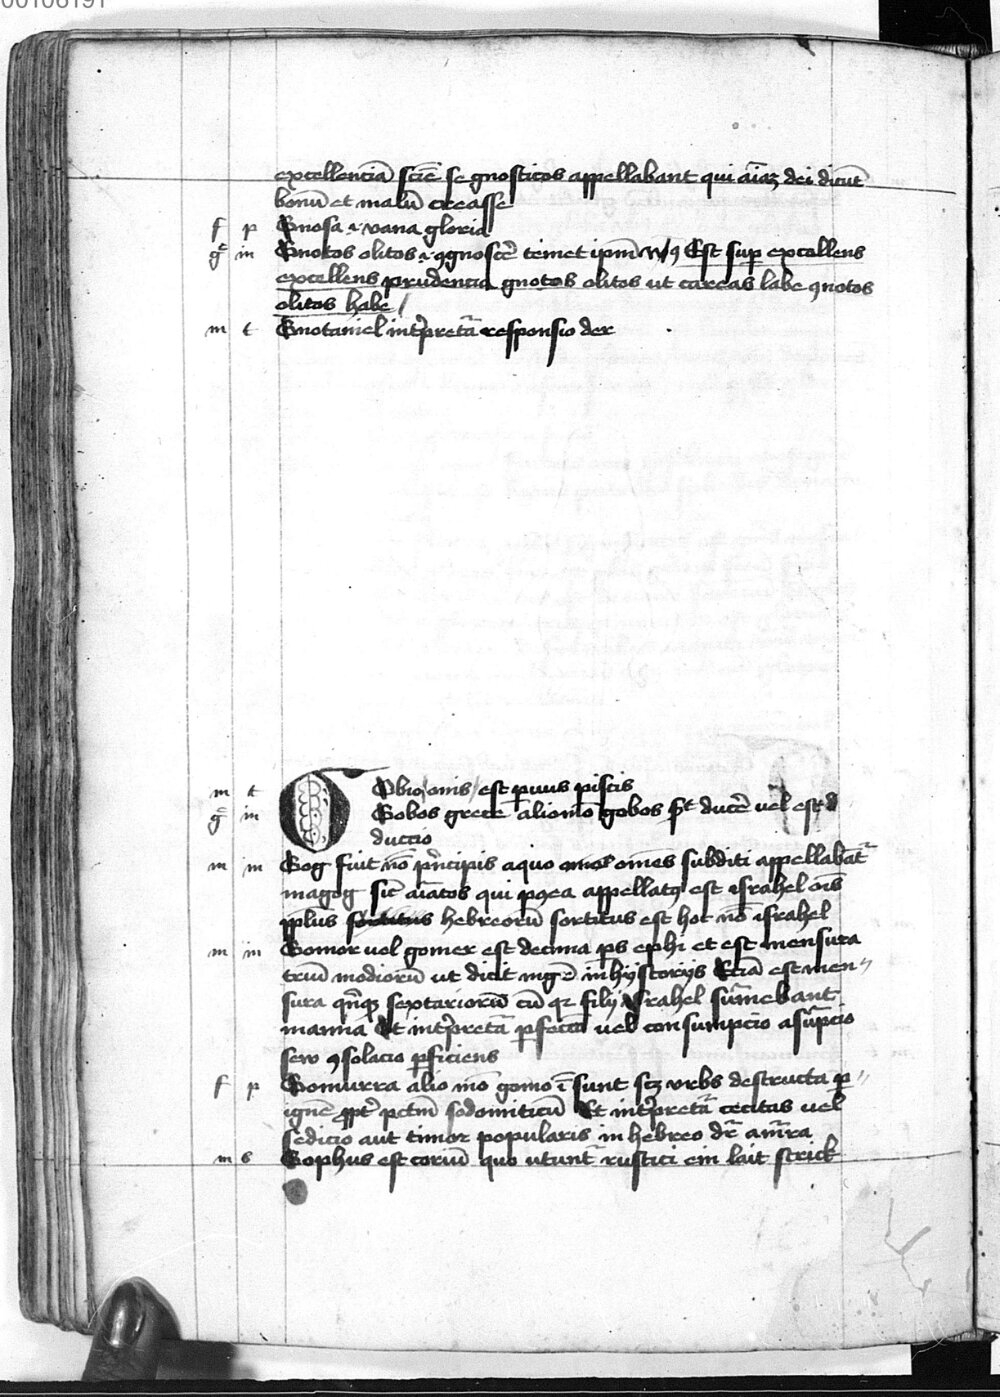 00106191
excellenciā scīe se gnosticos appellabant qui aīaȝ dei dicūt
bonū et malū creasse
f p Gnosa ·i· vana gloria
g̅ in Gnotos olitos ·i· ꝯgnosce temet ipm̄ Est sup excellens
excellens prudencia gnotos olitos ut careas labe gnotos
olitos habe
m t Gnotaniel int̓pretat̄ responsio dei
m t Gobio onis est pvus piscis
g̅ in Gobos grece alio nō gobos ducē vel est
duccio
m m Gog fuit nō pn̄cipis a quo omēs subditi appellabāt̄
magog sic aīatos qui pꝰea appellatꝰ est israhel oīs
pplus hebreorū sortitus est hoc nō israhel
m m Gomor vel gomer est decima ps ephi et est mensura
triū modiorū ut dicit mgr̄ in hystoriis Etiā est men-
sura qn̄qȝ sextariorū cū qͣ filij israhel sūmebant
manna Et int̓pretat̄ pfectū vel consumpcio asūpcio
seu ꝯsolacio pficiens
f p Gomurra alio nō gomo sunt scȝ vrbs destructa p
ignē ppt̓ pctm̄ sodomiticū Et int̓pretat̄ cecitas vel
sedicio aut timor popularis in hebreo dr̄ amra
m s Gophus est coriū quo utunt̄ rustici ein lait strick